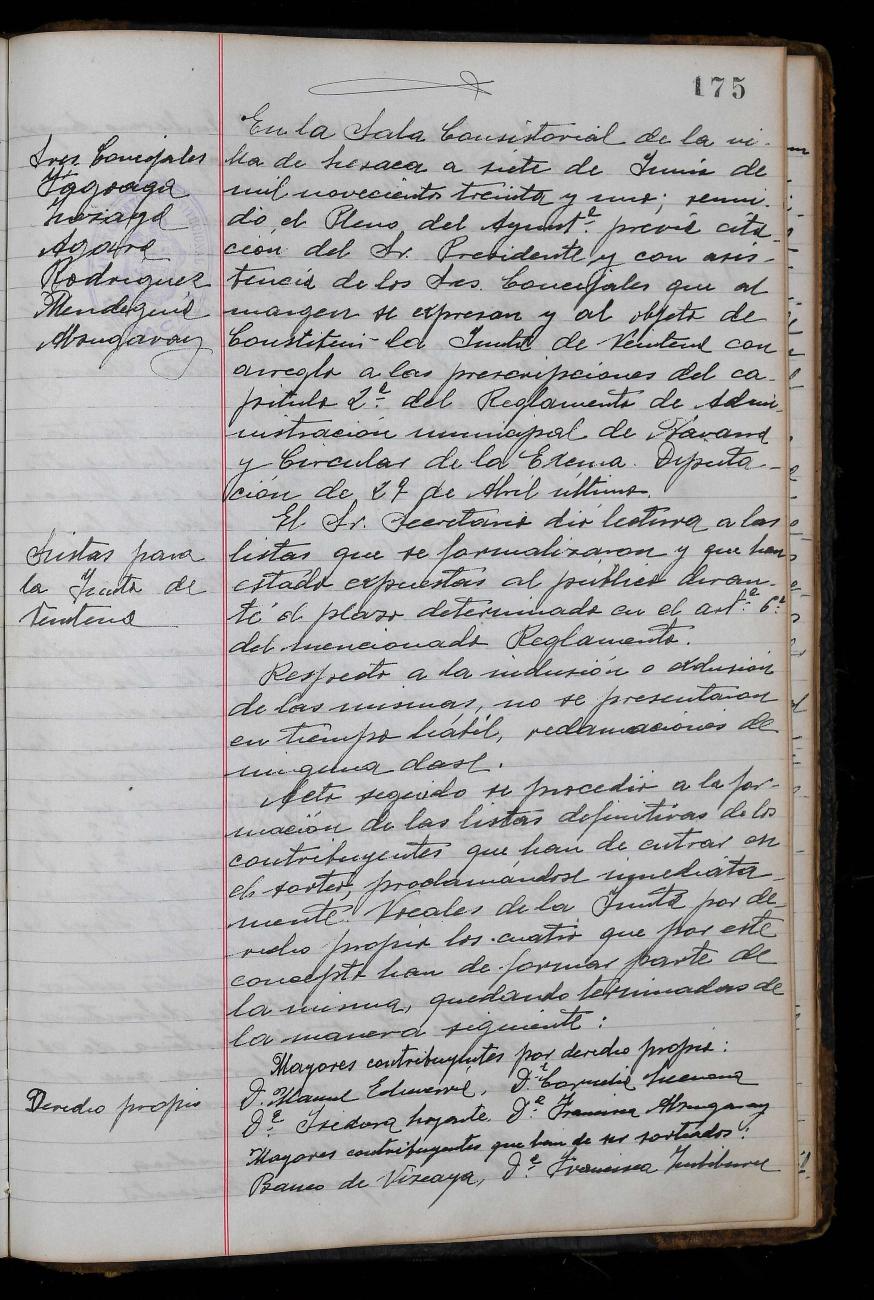 175
En la Sala Consistorial de la vi-
lla de Lesaca a siete de Junio de
mil novecientos treinta y uno; reuni-
do el Pleno del Ayuntº previa cita-
ción del Sr. Presidente y con asis-
tencia de los Sres. Concejales que al
margen se expresan y al objeto de
Constituir la Junta de Veintena con
arreglo a las prescripciones del ca-
pitulo 2º del Reglamento de Admi-
nistración municipal de Navarra
y Circular de la Excma. Diputa-
ción de 29 de Abril último.
El Sr. Secretario dió lectura a las
listas que se formalizaron y que han
estado expuestas al público duran-
te el plazo determinado en el artº 6º
del mencionado Reglamento.
Respecto a la inclusión o exclusión
de las mismas, no se presentaron
en tiempo hábil, reclamaciones de
ninguna clase.
Acto seguido se procedió a la for-
mación de las listas definitivas de los
contribuyentes que han de entrar en
el sorteo, proclamándose inmediata-
mente Vocales de la Junta por de-
recho propio los cuatro que por este
concepto han de formar parte de
la misma, quedando terminadas de
la manera siguiente:
Mayores contribuyentes por derecho propio:
D. Manuel Echeverria, Dª Cornelia
Dª Isidora Dª Francisca
Mayores contribuyentes que han de ser sorteados:
Banco de Vizcaya, Dª Francisca
Sres. Concejales
Rodriguez
Mendeguia
Listas para
la Junta de
Veintena
Derecho propio